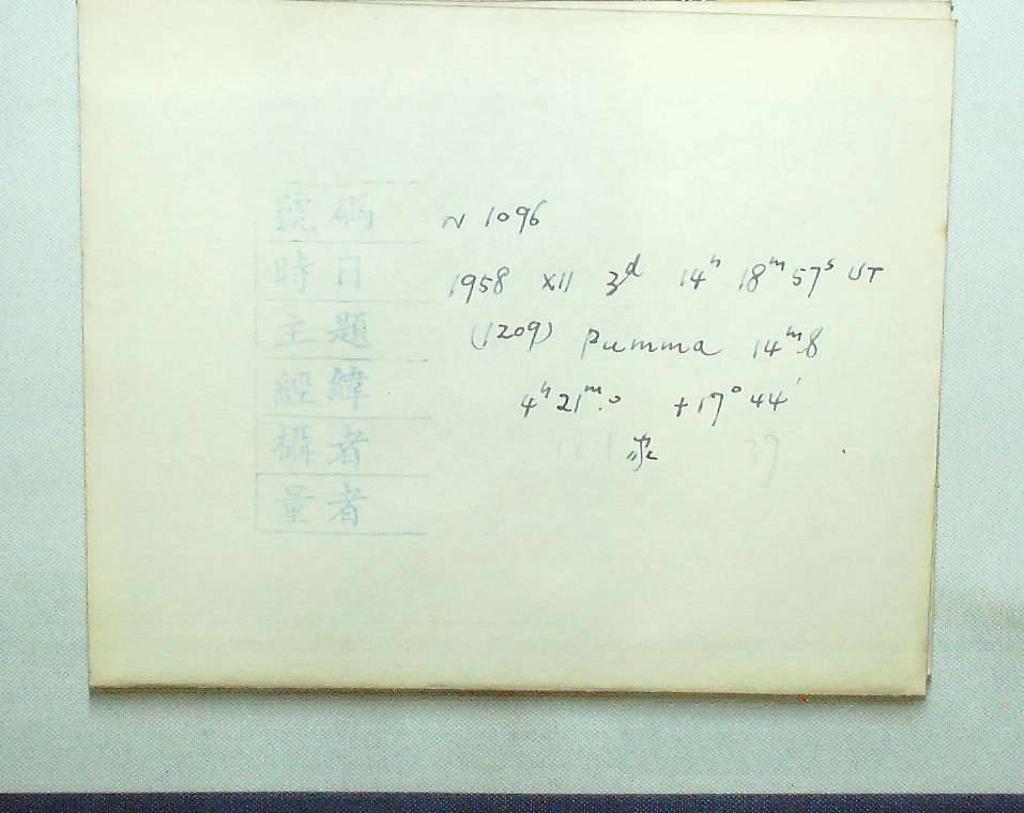 號碼 N 1096
時日 1958 XII 3ᵈ 14ʰ 18ᵐ 57ˢ UT
主題 (1209) Pumma 14ᵐ.8
經緯 4ʰ 21ᵐ.0 +17° 44′
攝者
量者